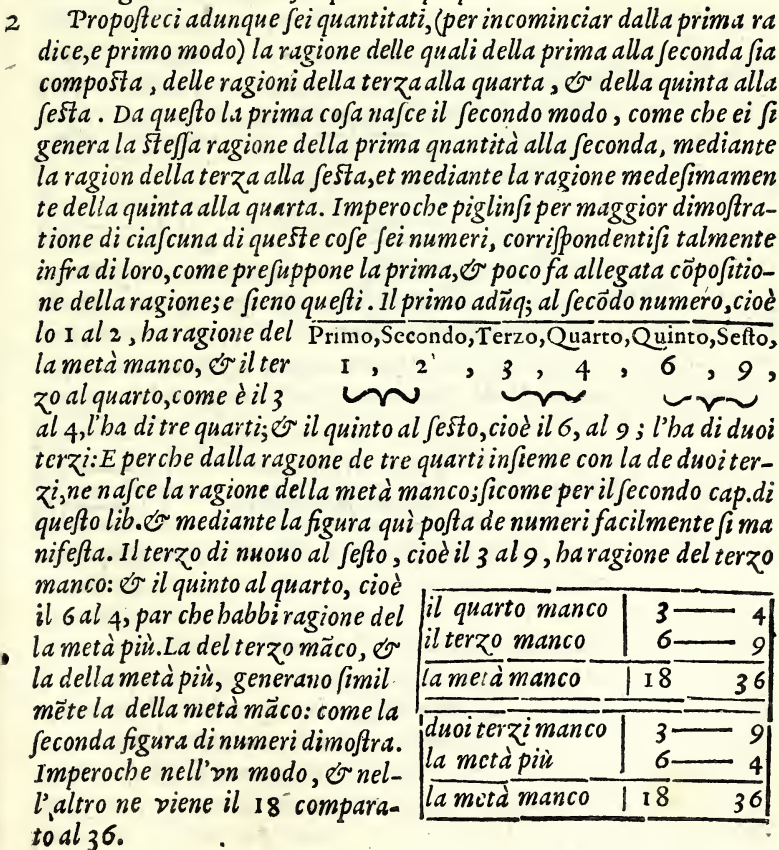 2 Propoſteci adunque ſei quantitati,(per incominciar dalla prima ra
dice,e primo modo) la ragione delle quali della prima alla ſeconda ſia
compoſta , delle ragioni della terza alla quarta , & della quinta alla
ſeſta . Da queſto la prima coſa naſce il ſecondo modo , come che ei ſi
genera la ſteſſa ragione della prima qnantità alla ſeconda, mediante
la ragion della terza alla ſeſta,et mediante la ragione medeſimamen
te della quinta alla quarta. Imperoche piglinſi per maggior dimoſtra-
tione di ciaſcuna di queſte coſe ſei numeri, corriſpondentiſi talmente
infra di loro,come preſuppone la prima,& poco fa allegata cõpoſitio-
ne della ragione;e ſieno queſti . Il primo adũq; al ſecõdo numero,cioè
lo 1 al 2 , ha ragione del
la metà manco, & il ter
zo al quarto,come è il 3
Primo,Secondo,Terzo,Quarto,Quinto,Seſto,
1 , 2 , 3 , 4 , 6 , 9 ,
al 4,l'ha di tre quarti;& il quinto al ſeſto,cioè il 6, al 9 ; l'ha di duoi
terzi:E perche dalla ragione de tre quarti inſieme con la de duoi ter-
zi,ne naſce la ragione della metà manco;ſicome per il ſecondo cap.di
queſto lib.& mediante la figura quì poſta de numeri facilmente ſi ma
nifeſta. Il terzo di nuouo al ſeſto , cioè il 3 al 9 , ha ragione del terzo
manco: & il quinto al quarto, cioè
il 6 al 4, par che habbi ragione del
la metà più.La del terzo mãco, &
la della metà più, generano ſimil
mẽte la della metà mãco: come la
ſeconda figura di numeri dimoſtra.
Imperoche nell'vn modo , & nel-
l'altro ne viene il 18 compara-
to al 36.
il quarto manco | 3 — 4
il terzo manco | 6 — 9
la metà manco | 18 36
duoi terzi manco | 3 — 9
la metà più | 6 — 4
la metà manco | 18 36